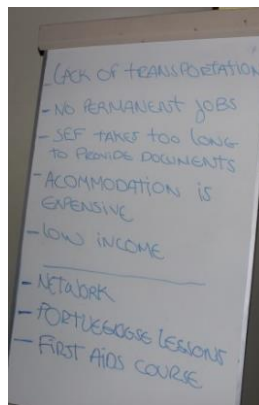 - LACK OF TRANSPORTATION
- NO PERMANENT JOBS
- SEF TAKES TOO LONG
TO PROVIDE DOCUMENTS
- ACOMMODATION IS
EXPENSIVE
- LOW INCOME
- NETWORK
- PORTUEGOSE LESSONS
- FIRST AIDS COURSE